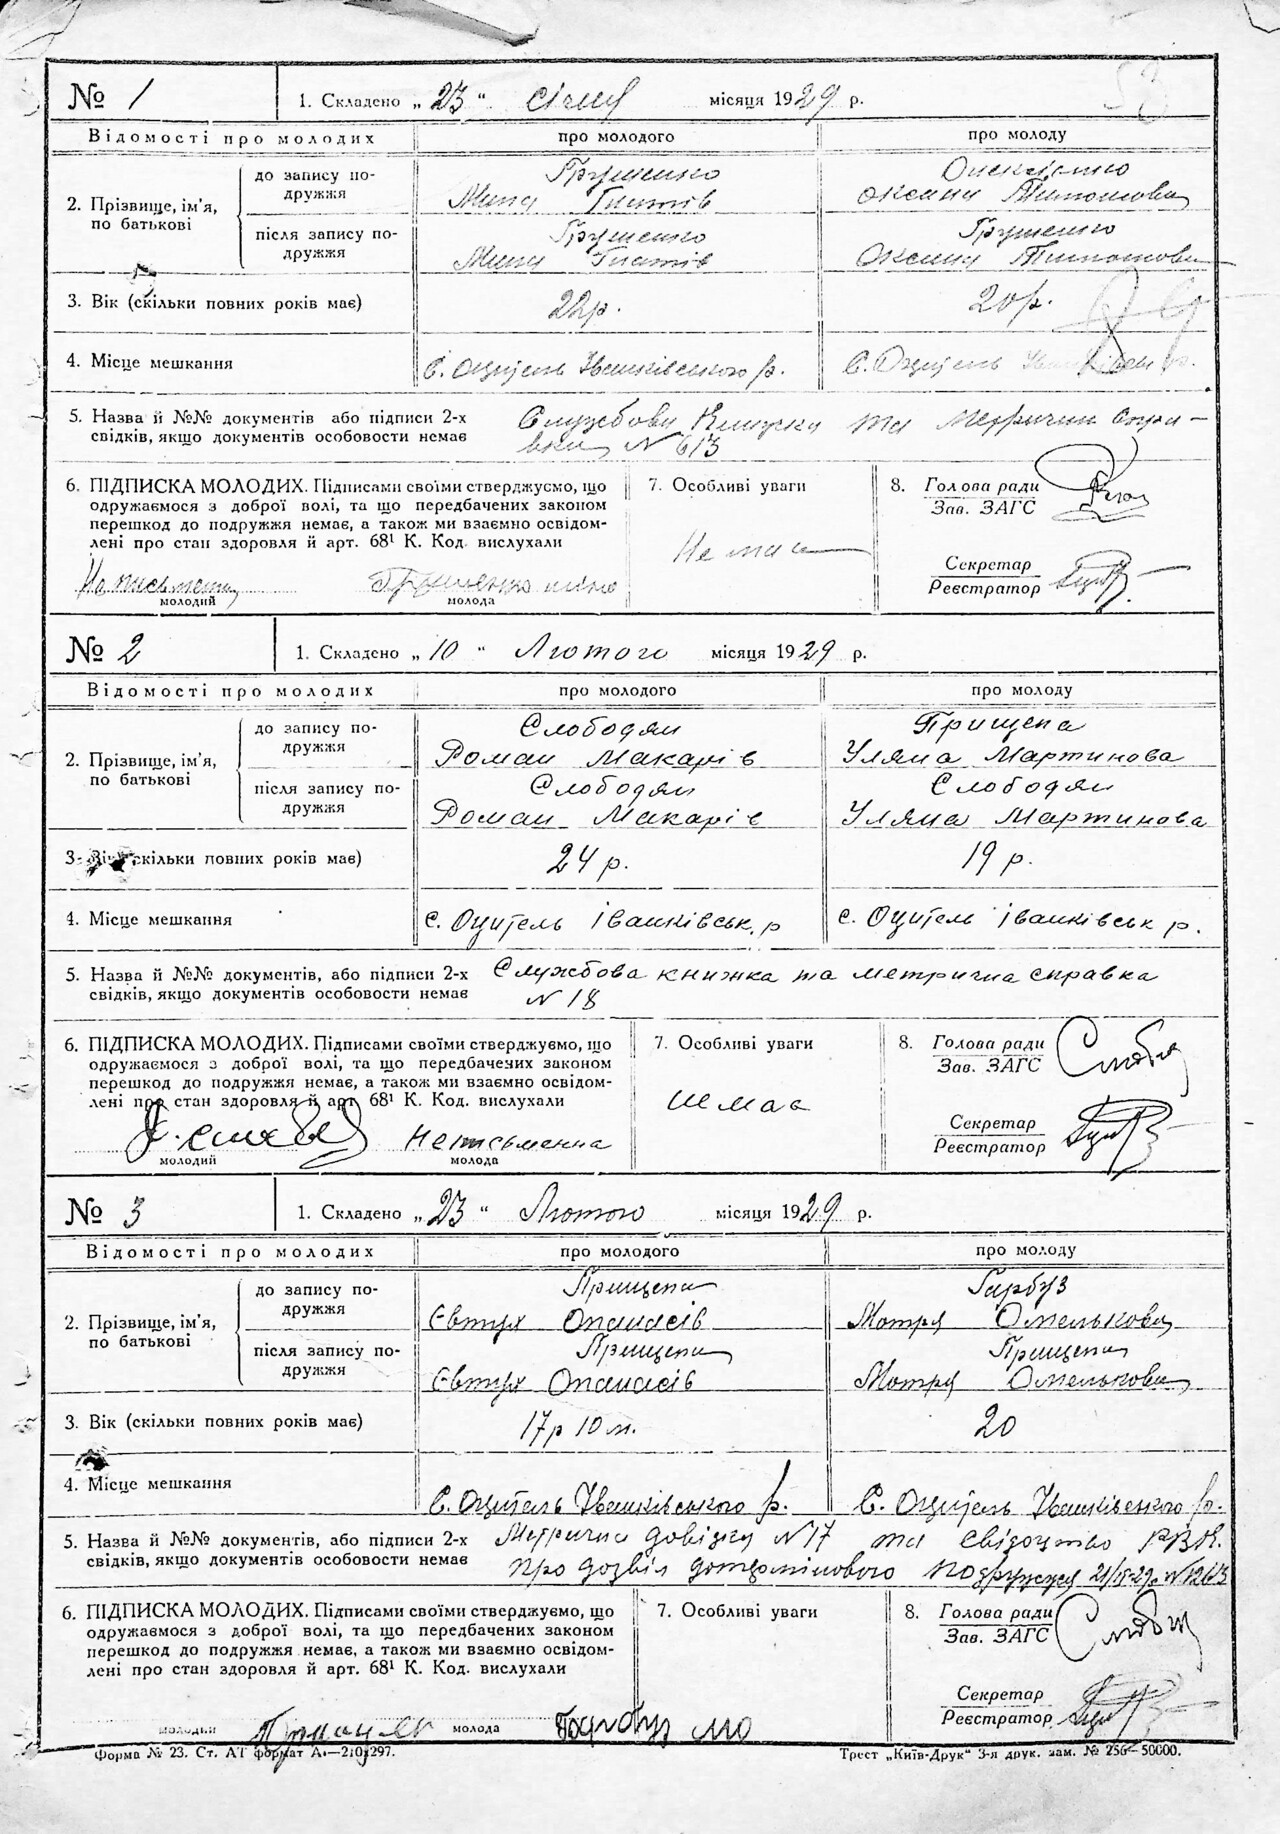 № 1 1. Складено „23“ січня місяця 1929 р.
Відомості про молодих про молодого про молоду
2. Прізвище, ім'я, по батькові
до запису подружжя Грушенко Оксана Тимошова
Мина Гнатів
після запису подружжя Грушенко Грушенко
Мина Гнатів Оксана Тимошова
3. Вік (скільки повних років має) 22р. 20р.
4. Місце мешкання с. Оцитель Іванківського р. с. Оцитель
5. Назва й №№ документів або підписи 2-х Службова книжка та метрична
свідків, якщо документів особовости немає N 613
6. ПІДПИСКА МОЛОДИХ. Підписами своїми стверджуємо, що 7. Особливі уваги 8. Голова ради
одружаємося з доброї волі, та що передбачених законом Зав. ЗАГС
перешкод до подружжя немає, а також ми взаємно освідом-
лені про стан здоров'я й арт. 68¹ К. Код. вислухали Не має Секретар
Реєстратор
молодий молода
№ 2 1. Складено „10“ Лютого місяця 1929 р.
Відомості про молодих про молодого про молоду
2. Прізвище, ім'я, по батькові
до запису подружжя Слободян Прищепа
Роман Макарів Уляна Мартинова
після запису подружжя Слободян Слободян
Роман Макарів Уляна Мартинова
3. Вік (скільки повних років має) 24 р. 19 р.
4. Місце мешкання с. Оцитель Іванківськ. р с. Оцитель Іванківськ р.
5. Назва й №№ документів, або підписи 2-х Службова книжка та метрична справка
свідків, якщо документів особовости немає N 18
6. ПІДПИСКА МОЛОДИХ. Підписами своїми стверджуємо, що 7. Особливі уваги 8. Голова ради
одружаємося з доброї волі, та що передбачених законом Зав. ЗАГС
перешкод до подружжя немає, а також ми взаємно освідом-
лені про стан здоров'я й арт 68¹ К. Код. вислухали Секретар
Неписьменна Реєстратор
молодий молода
№ 3 1. Складено „23“ Лютого місяця 1929 р.
Відомості про молодих про молодого про молоду
2. Прізвище, ім'я, по батькові
до запису подружжя Прищепа Гарбуз
Євтух Опанасів Мотря Омелькова
після запису подружжя Прищепа Прищепа
Євтух Опанасів Мотря Омелькова
3. Вік (скільки повних років має) 17р 10 м. 20
4. Місце мешкання с. Оцитель Іванківського р. с. Оцитель Іванківського р.
5. Назва й №№ документів, або підписи 2-х Метрична довідка N 17 та свідоцтво
свідків, якщо документів особовости немає про дозвіл подружжя
6. ПІДПИСКА МОЛОДИХ. Підписами своїми стверджуємо, що 7. Особливі уваги 8. Голова ради
одружаємося з доброї волі, та що передбачених законом Зав. ЗАГС
перешкод до подружжя немає, а також ми взаємно освідом-
лені про стан здоров'я й арт. 68¹ К. Код. вислухали Секретар
Реєстратор
молодий молода
Форма № 23. Ст. АТ формат А₄—210×297. Трест „Київ-Друк“ 3-я друк. зам. № 256—50000.